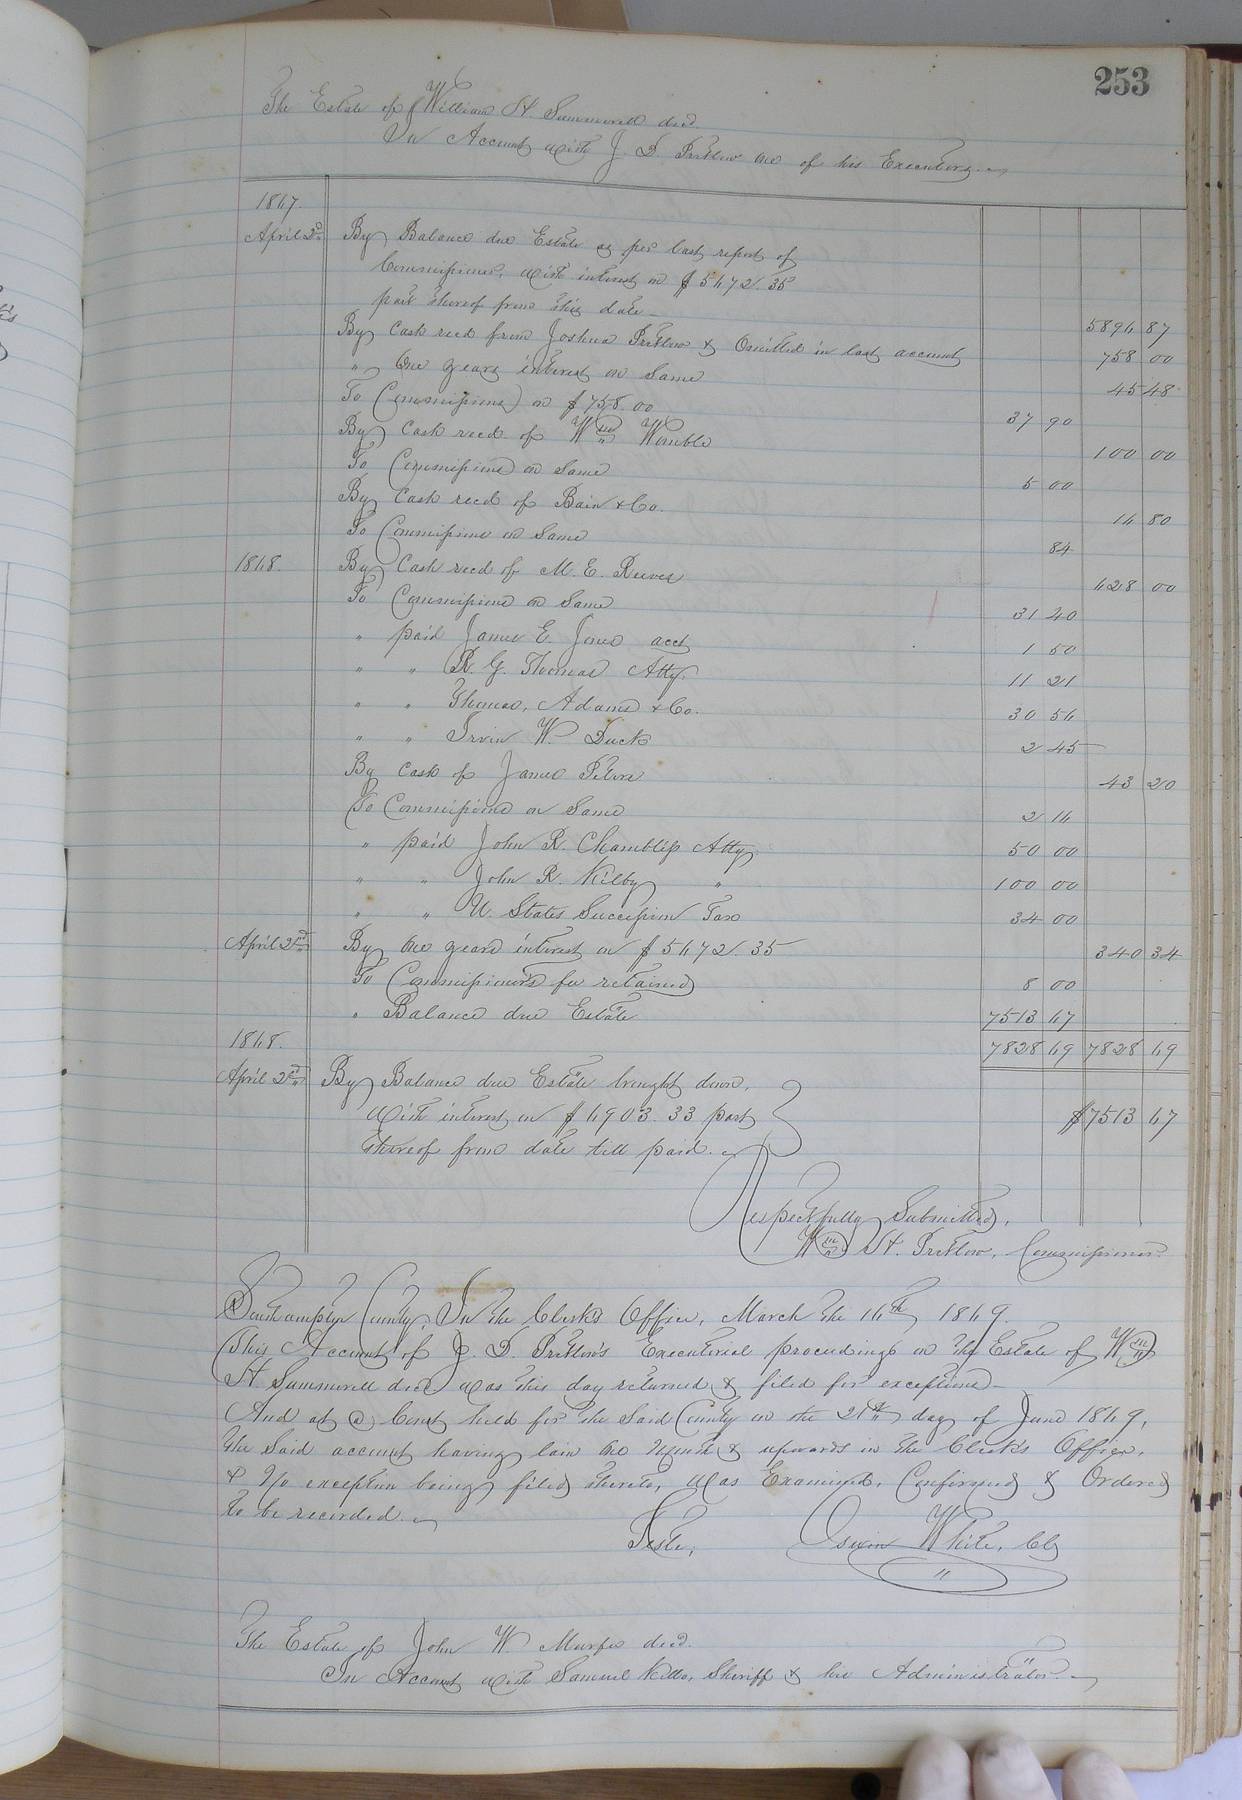 253
The Estate of William H Summerell decd.
In Account with J. D. Pretlow one of his Executors.
1867.
April 2d By Balance due Estate as per last report of
Commissioner, with interest on $5672.35
part thereof from this date 5896 87
By Cash recd from Joshua Pretlow & Omitted in last account 758 00
" One years interest on Same 45 48
To Commissions on $758.00 37 90
By Cash recd of Wm Womble 100 00
To Commissions on Same 5 00
By Cash recd of Bain & Co. 16 80
To Commissions on Same 84
1868. By Cash recd of M. E. Reeves 628 00
To Commissions on Same 31 40
" paid James E. Jones acct 1 50
" " R. G. Thomas Atty. 11 21
" " Thomas, Adams & Co. 30 56
" " Irvin W. Duck 2 45
By Cash of James Peters 43 20
To Commissions on Same 2 16
" paid John R. Chambliss Atty. 50 00
" " John R. Kilby " 100 00
" " U. States Succession Tax 34 00
April 2nd By One years interest on $5672.35 340 34
To Commissioner's fee retained 8 00
" Balance due Estate 7513 67
1868. 7828 69 7828 69
April 2nd By Balance due Estate brought down,
with interest on $6903.33 part $7513 67
thereof from date till paid.
Respectfully Submitted,
Wm H. Pretlow, Commissioner.
Southampton County, In the Clerk's Office, March the 16th 1869.
This Account of J. D. Pretlow's Executorial proceedings on the Estate of Wm
H. Summerell decd was this day returned & filed for exceptions
And at a Court held for the Said County on the 21st day of June 1869,
the Said account having lain one Month & upwards in the Clerk's Office,
& No exception being filed thereto, was Examined, Confirmed & Ordered
to be recorded.
Teste, Oswin White, Clk
The Estate of John W. Murfee decd.
In Account with Samuel Kello, Sheriff & his Administrator.